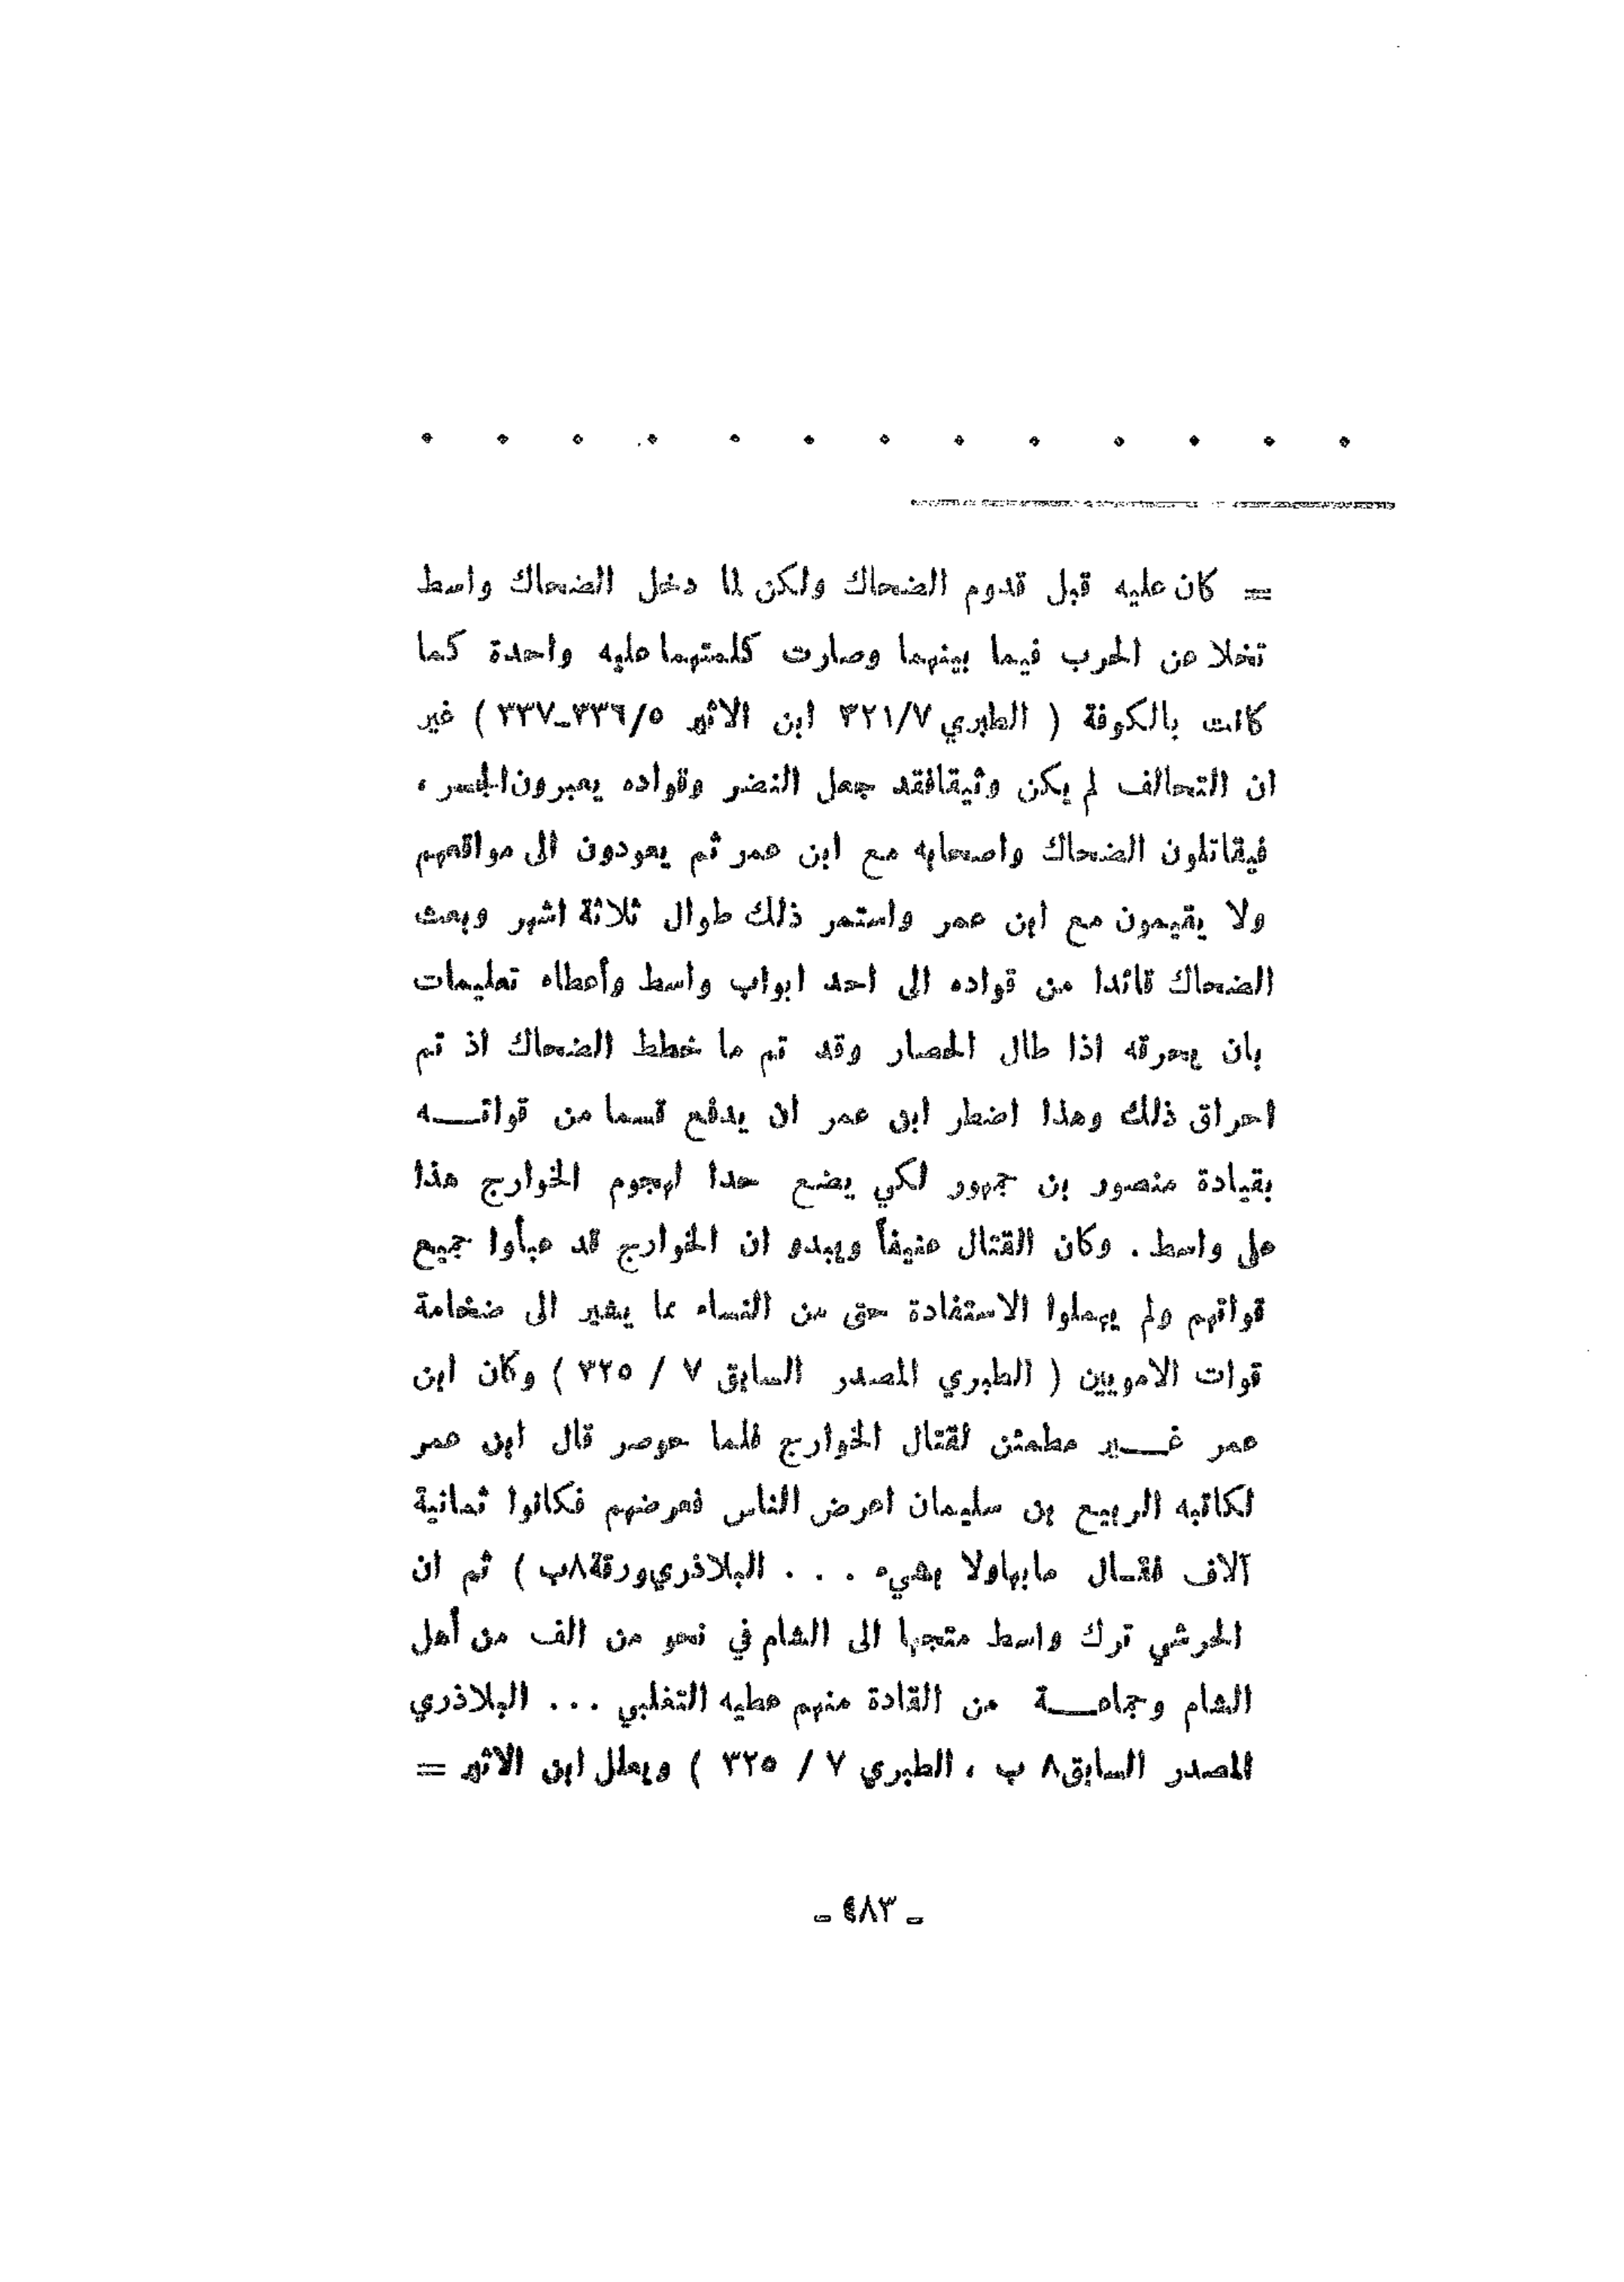 . . . . . . . . . . . . .
= كان عليه قبل قدوم الضحاك ولكن لما دخل الضحاك واسط
تخلا عن الحرب فيما بينهما وصارت كلمتهما عليه واحدة كما
كانت بالكوفة ( الطبري ٣٢١/٧ ابن الاثير ٣٣٦/٥ـ٣٣٧ ) غير
ان التحالف لم يكن وثيقافقد جعل النضر وقواده يعبرون الجسر ،
فيقاتلون الضحاك واصحابه مع ابن عمر ثم يعودون الى مواقعهم
ولا يقيمون مع ابن عمر واستمر ذلك طوال ثلاثة اشهر وبعث
الضحاك قائدا من قواده الى احد ابواب واسط وأعطاه تعليمات
بان يحرقه اذا طال الحصار وقد تم ما خطط الضحاك اذ تم
احراق ذلك وهذا اضطر ابن عمر ان يدفع قسما من قواتـــه
بقيادة منصور بن جمهور لكي يضع حدا لهجوم الخوارج هذا
على واسط . وكان القتال عنيفاً ويبدو ان الخوارج قد عبأوا جميع
قواتهم ولم يهملوا الاستفادة حتى من النساء مما يشير الى ضخامة
قوات الامويين ( الطبري المصدر السابق ٧ / ٣٢٥ ) وكان ابن
عمر غـــير مطمئن لقتال الخوارج فلما حوصر قال ابن عمر
لكاتبه الربيع بن سليمان اعرض الناس فعرضهم فكانوا ثمانية
آلاف فقـال مابهاولا بشيء . . . البلاذري ورقة ٨ب ) ثم ان
الحرشي ترك واسط متجها الى الشام في نحو من الف من أهل
الشام وجماعـــة من القادة منهم عطيه التغلبي ... البلاذري
المصدر السابق ٨ ب ، الطبري ٧ / ٣٢٥ ) ويعلل ابن الاثير =
ـ ٤٨٣ ـ